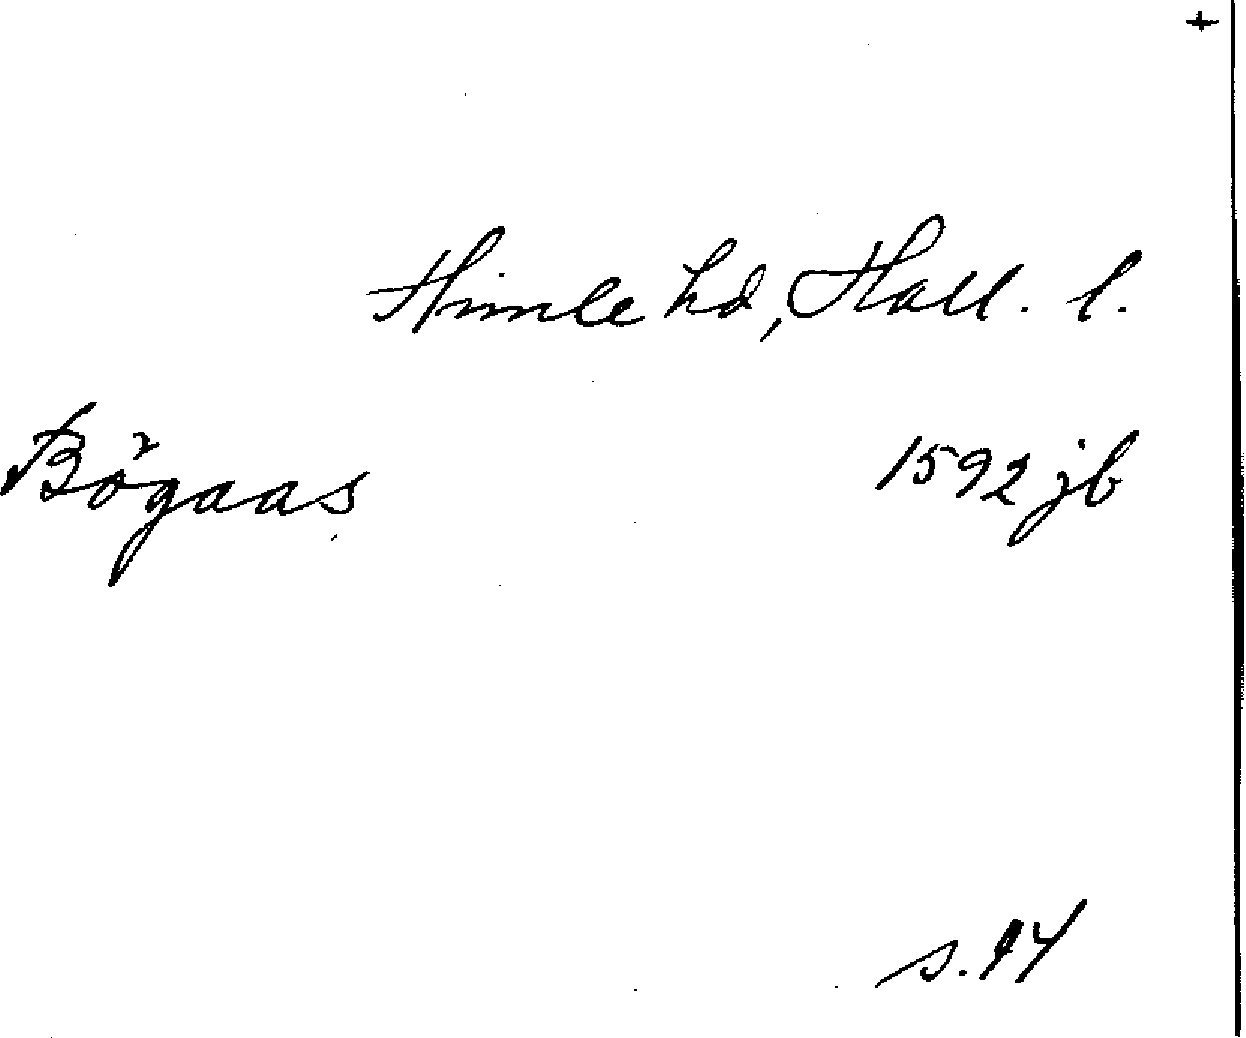 +
Himle hd, Hall. l.
Bögaas 1592 jb
s. 94